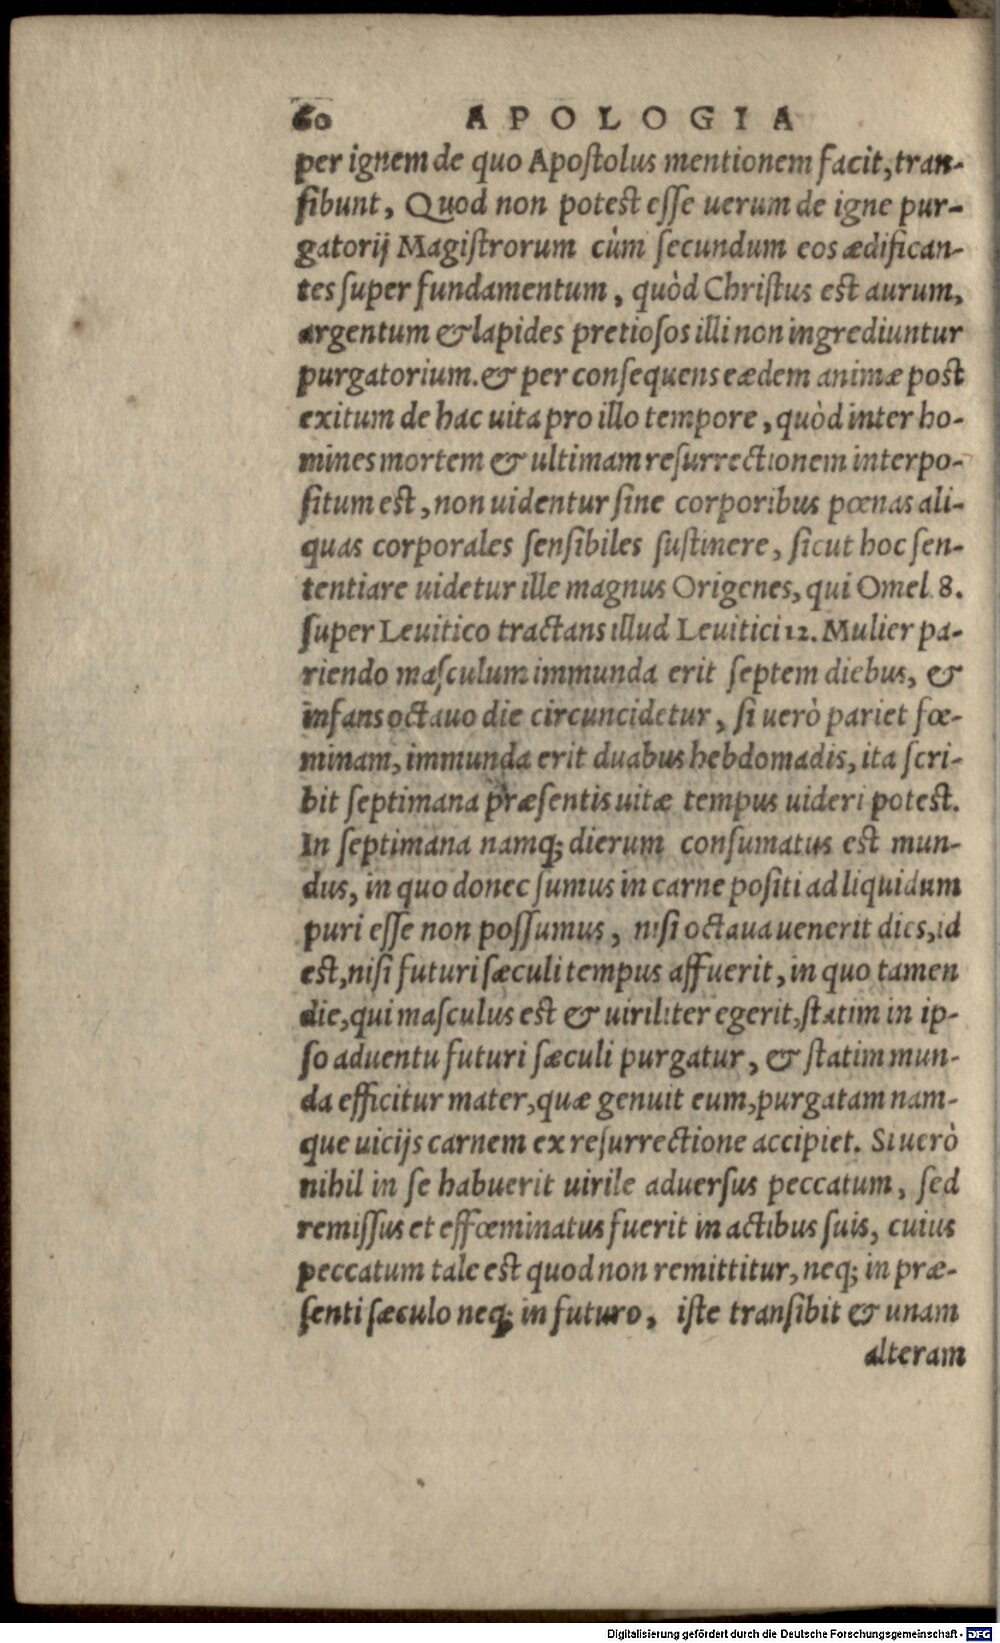 60 APOLOGIA
per ignem de quo Apoſtolus mentionem facit, tran-
ſibunt, Quod non poteſt eſſe uerum de igne pur-
gatorij Magiſtrorum cùm ſecundum eos ædifican-
tes ſuper fundamentum, quòd Chriſtus eſt aurum,
argentum & lapides pretioſos illi non ingrediuntur
purgatorium. & per conſequens eædem animæ poſt
exitum de hac uita pro illo tempore, quòd inter ho-
mines mortem & ultimam reſurrectionem interpo-
ſitum eſt, non uidentur ſine corporibus pœnas ali-
quas corporales ſenſibiles ſuſtinere, ſicut hoc ſen-
tentiare uidetur ille magnus Origenes, qui Omel. 8.
ſuper Leuitico tractans illud Leuitici 12. Mulier pa-
riendo maſculum immunda erit ſeptem diebus, &
infans octauo die circuncidetur, ſi uerò pariet fœ-
minam, immunda erit duabus hebdomadis, ita ſcri-
bit ſeptimana præſentis uitæ tempus uideri poteſt.
In ſeptimana namq; dierum conſumatus eſt mun-
dus, in quo donec ſumus in carne poſiti ad liquidum
puri eſſe non poſſumus, niſi octaua uenerit dies, id
eſt, niſi futuri ſæculi tempus affuerit, in quo tamen
die, qui maſculus eſt & uiriliter egerit, ſtatim in ip-
ſo aduentu futuri ſæculi purgatur, & ſtatim mun-
da efficitur mater, quæ genuit eum, purgatam nam-
que uicijs carnem ex reſurrectione accipiet. Si uerò
nihil in ſe habuerit uirile aduerſus peccatum, ſed
remiſſus et effœminatus fuerit in actibus ſuis, cuius
peccatum tale eſt quod non remittitur, neq; in præ-
ſenti ſæculo neq; in futuro, iſte tranſibit & unam
alteram
Digitalisierung gefördert durch die Deutsche Forschungsgemeinschaft - DFG